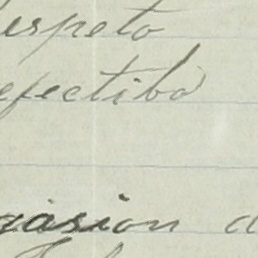 espeto
efectibo
rasion a